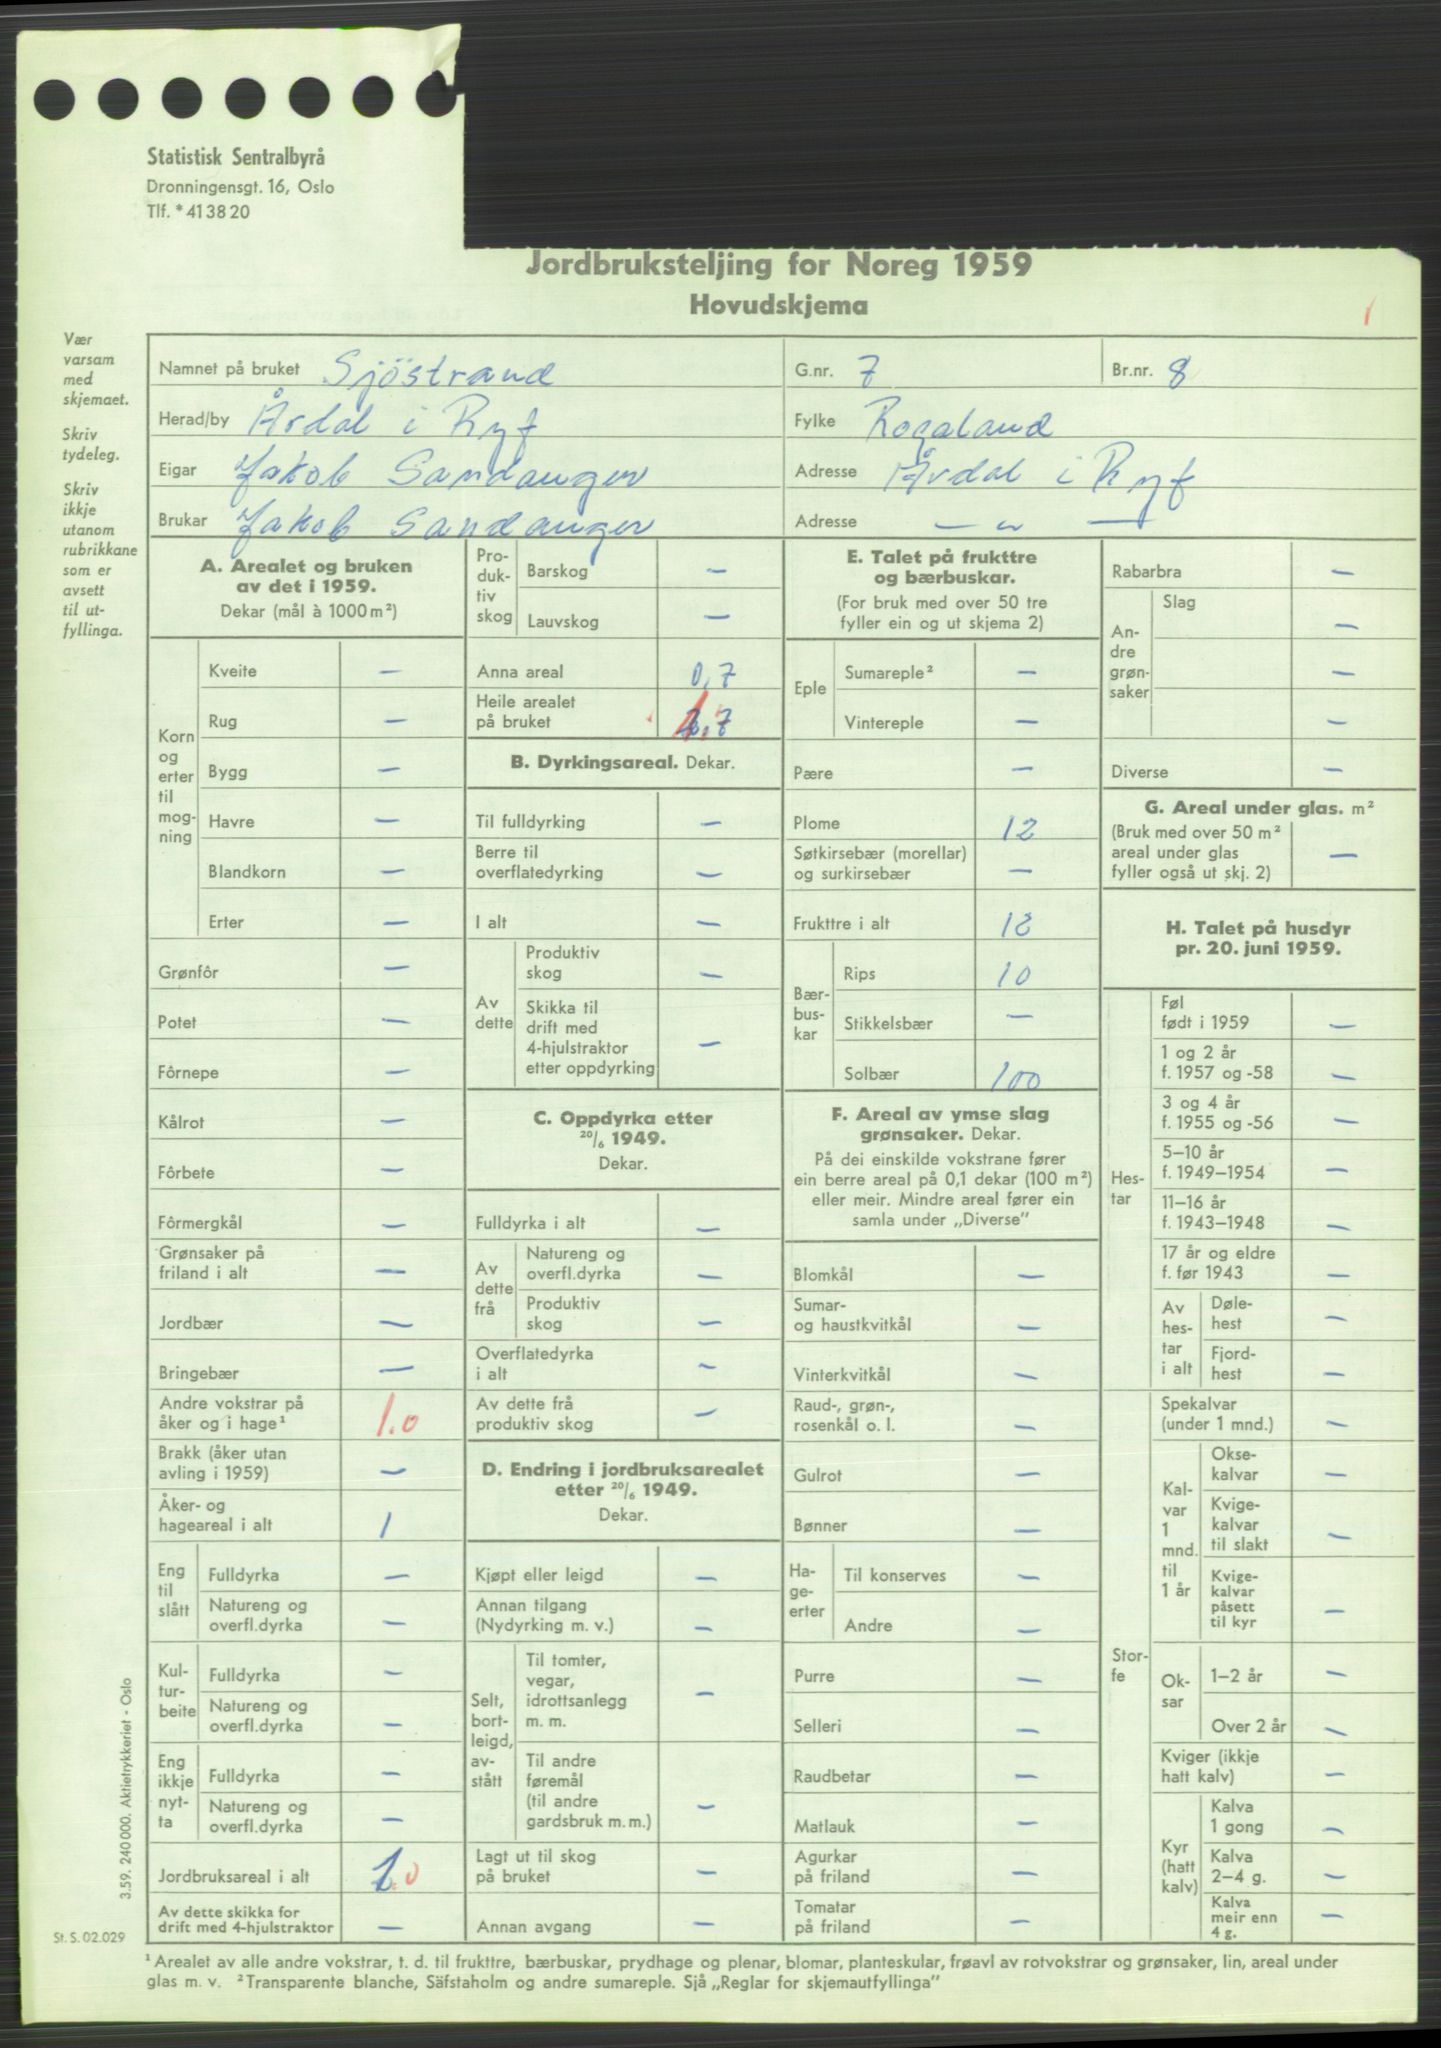 Statistisk Sentralbyrå
Dronningensgt. 16, Oslo
Tlf. * 41 38 20
Jordbruksteljing for Noreg 1959
Hovudskjema
Vær
varsam
med
skjemaet.
Skriv
tydeleg.
Skriv
ikkje
utanom
rubrikkane
som er
avsett
til ut-
fyllinga.
Namnet på bruket Sjöstrand G.nr. 7 Br.nr. 8
Herad/by Årdal i Ryf Fylke Rogaland
Eigar Jakob Sandanger Adresse Årdal i Ryf
Brukar Jakob Sandanger Adresse — " —
A. Arealet og bruken
av det i 1959.
Dekar (mål à 1000 m²)
Korn
og
erter
til
mog-
ning
Kveite —
Rug —
Bygg —
Havre —
Blandkorn —
Erter —
Grønfôr —
Potet —
Fôrnepe —
Kålrot —
Fôrbete —
Fôrmergkål —
Grønsaker på
friland i alt —
Jordbær —
Bringebær —
Andre vokstrar på
åker og i hage¹ 1.0
Brakk (åker utan
avling i 1959) —
Åker- og
hageareal i alt 1
Eng
til
slått
Fulldyrka —
Natureng og
overfl.dyrka —
Kul-
tur-
beite
Fulldyrka —
Natureng og
overfl.dyrka —
Eng
ikkje
nyt-
ta
Fulldyrka —
Natureng og
overfl.dyrka —
Jordbruksareal i alt 1.0
Av dette skikka for
drift med 4-hjulstraktor —
Pro-
duk-
tiv
skog
Barskog —
Lauvskog —
Anna areal 0,7
Heile arealet
på bruket 1.7
B. Dyrkingsareal. Dekar.
Til fulldyrking —
Berre til
overflatedyrking —
I alt —
Av
dette
Produktiv
skog —
Skikka til
drift med
4-hjulstraktor
etter oppdyrking —
C. Oppdyrka etter
20/6 1949.
Dekar.
Fulldyrka i alt —
Av
dette
frå
Natureng og
overfl.dyrka —
Produktiv
skog —
Overflatedyrka
i alt —
Av dette frå
produktiv skog —
D. Endring i jordbruksarealet
etter 20/6 1949.
Dekar.
Kjøpt eller leigd —
Annan tilgang
(Nydyrking m. v.) —
Selt,
bort-
leigd,
av-
stått
Til tomter,
vegar,
idrottsanlegg
m. m. —
Til andre
føremål
(til andre
gardsbruk m. m.) —
Lagt ut til skog
på bruket —
Annan avgang —
E. Talet på frukttre
og bærbuskar.
(For bruk med over 50 tre
fyller ein og ut skjema 2)
Eple
Sumareple² —
Vintereple —
Pære —
Plome 12
Søtkirsebær (morellar)
og surkirsebær —
Frukttre i alt 12
Bær-
bus-
kar
Rips 10
Stikkelsbær —
Solbær 100
F. Areal av ymse slag
grønsaker. Dekar.
På dei einskilde vokstrane fører
ein berre areal på 0,1 dekar (100 m²)
eller meir. Mindre areal fører ein
samla under „Diverse”
Blomkål —
Sumar-
og haustkvitkål —
Vinterkvitkål —
Raud-, grøn-,
rosenkål o. l. —
Gulrot —
Bønner —
Ha-
ge-
erter
Til konserves —
Andre —
Purre —
Selleri —
Raudbetar —
Matlauk —
Agurkar
på friland —
Tomatar
på friland —
Rabarbra —
An-
dre
grøn-
saker
Slag
—
—
—
Diverse —
G. Areal under glas. m²
(Bruk med over 50 m²
areal under glas
fyller også ut skj. 2) —
H. Talet på husdyr
pr. 20. juni 1959.
Hes-
tar
Føl
født i 1959 —
1 og 2 år
f. 1957 og -58 —
3 og 4 år
f. 1955 og -56 —
5–10 år
f. 1949–1954 —
11–16 år
f. 1943–1948 —
17 år og eldre
f. før 1943 —
Av
hes-
tar
i alt
Døle-
hest —
Fjord-
hest —
Stor-
fe
Spekalvar
(under 1 mnd.) —
Kal-
var
1
mnd.
til
1 år
Okse-
kalvar —
Kvige-
kalvar
til slakt —
Kvige-
kalvar
påsett
til kyr —
Ok-
sar
1–2 år —
Over 2 år —
Kviger (ikkje
hatt kalv) —
Kyr
(hatt
kalv)
Kalva
1 gong —
Kalva
2–4 g. —
Kalva
meir enn
4 g. —
3.59. 240 000. Aktietrykkeriet - Oslo
St. S. 02.029
¹ Arealet av alle andre vokstrar, t. d. til frukttre, bærbuskar, prydhage og plenar, blomar, planteskular, frøavl av rotvokstrar og grønsaker, lin, areal under
glas m. v. ² Transparente blanche, Säfstaholm og andre sumareple. Sjå „Reglar for skjemautfyllinga”